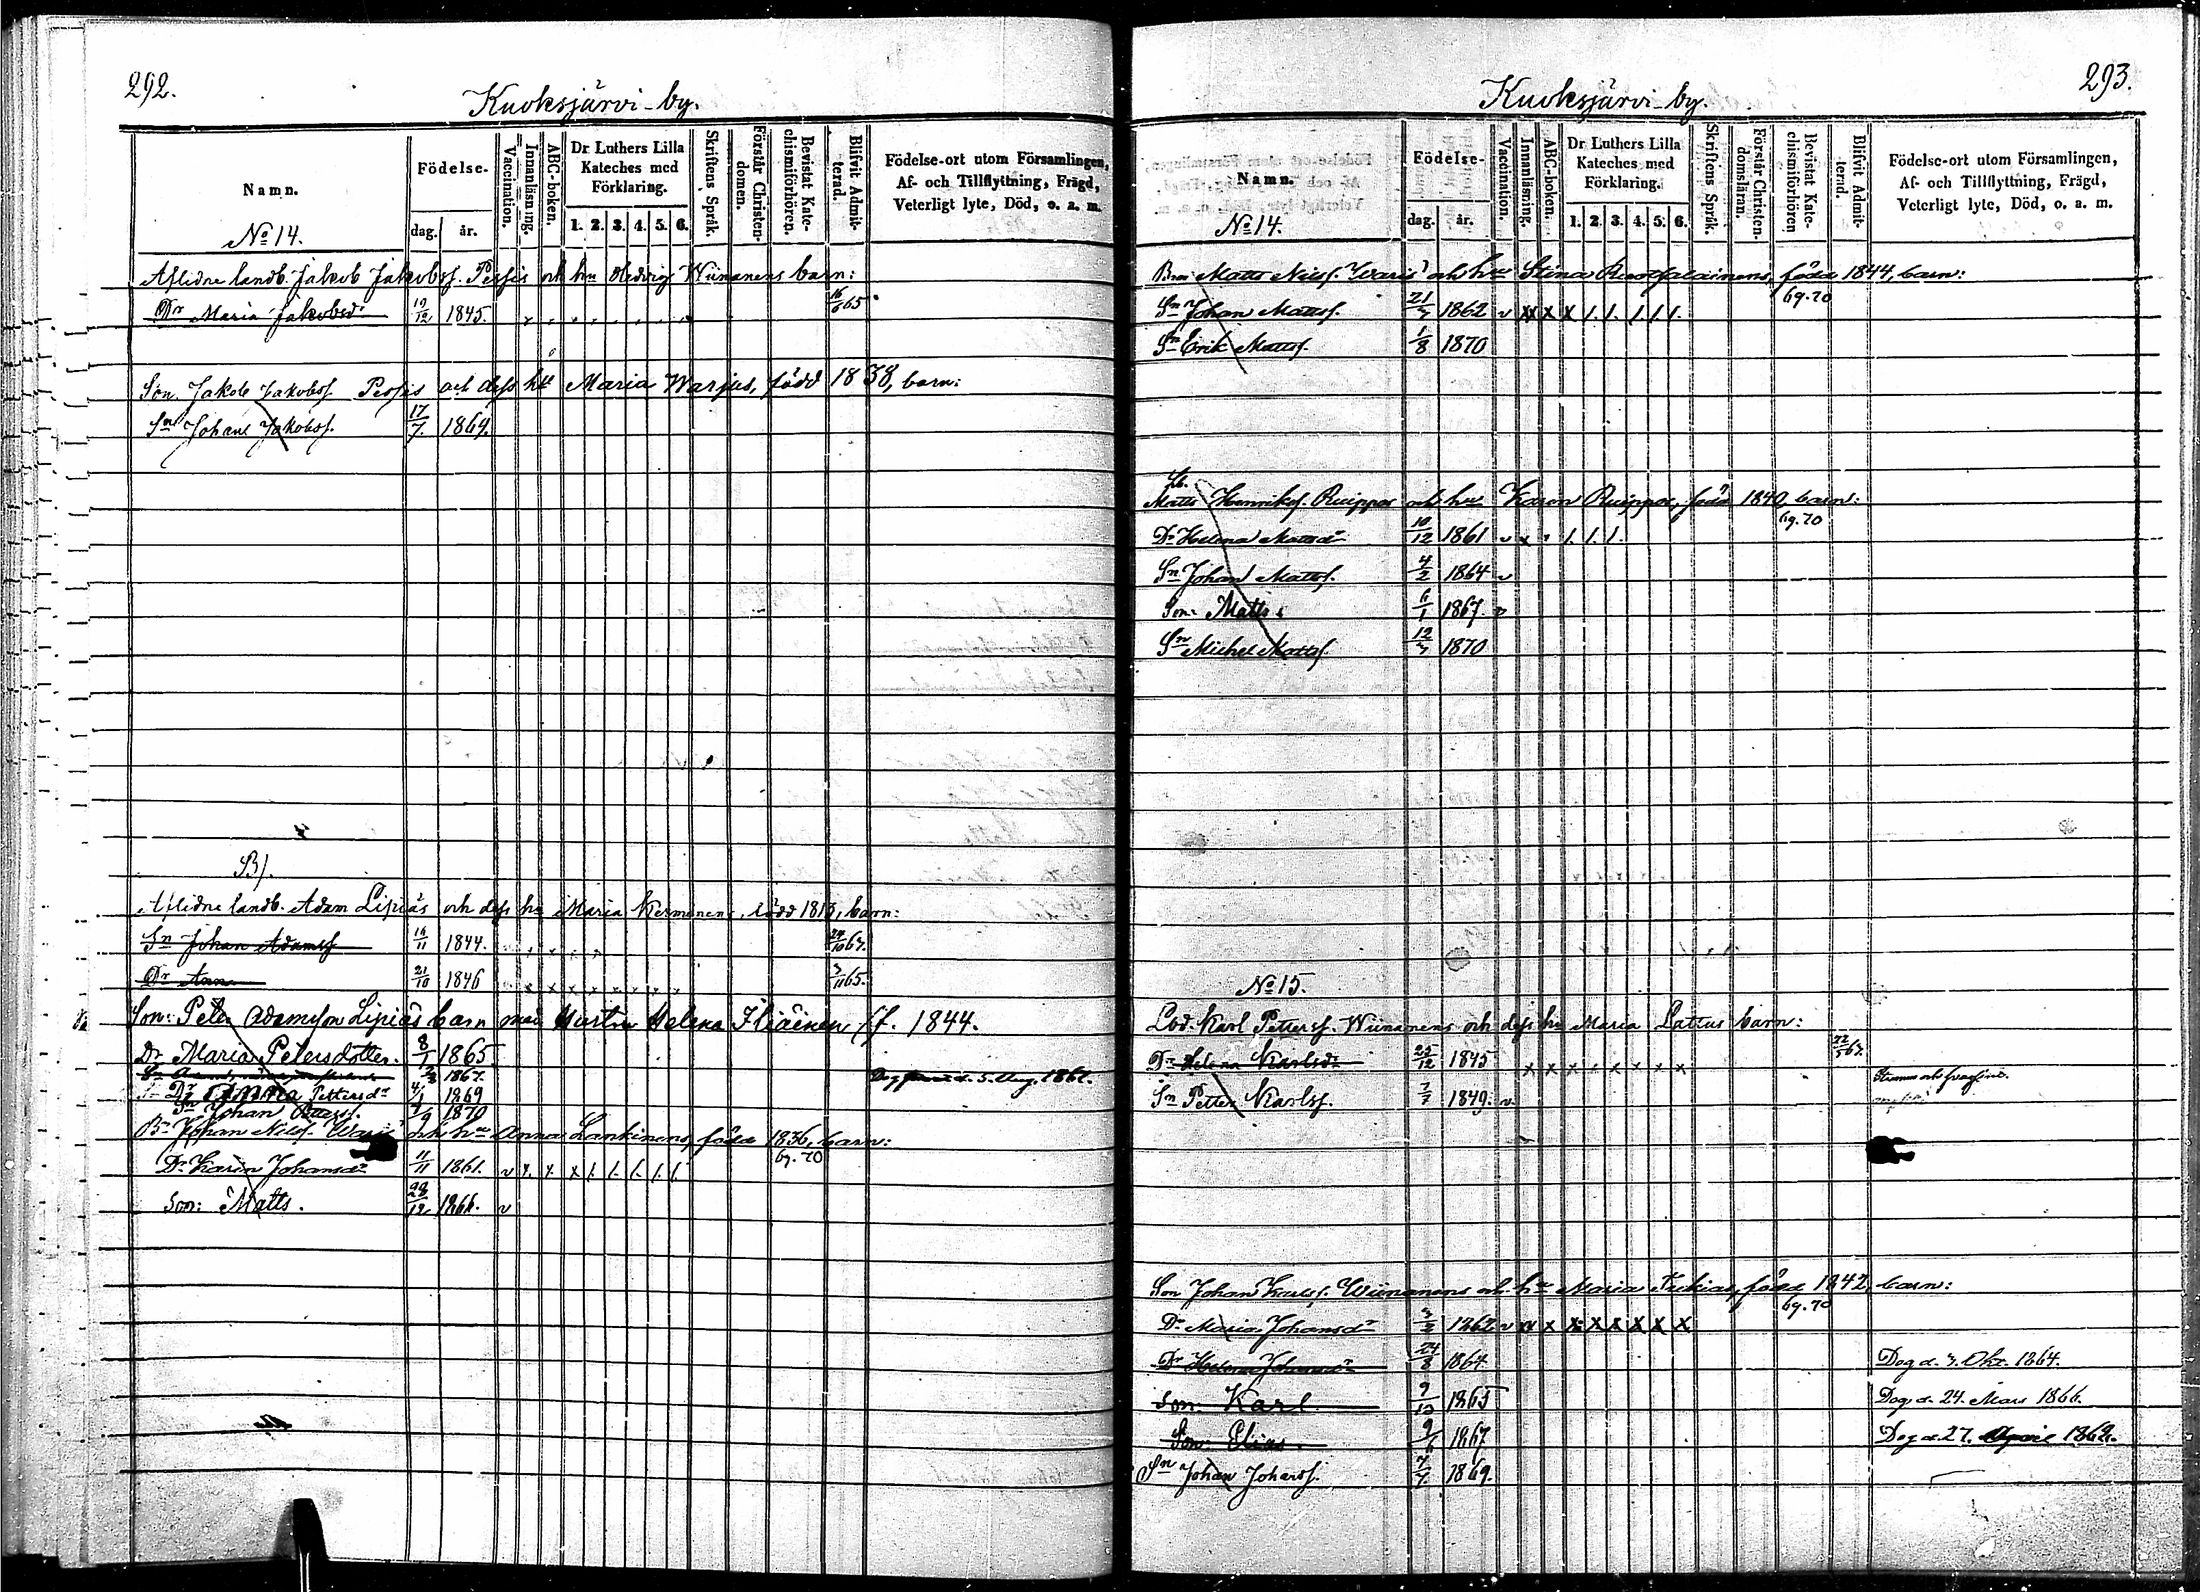 292.
Kuoksjärvi-by.
Namn.
Födelse-
dag.
år.
Vaccination.
Innanläsning.
ABC-boken.
Dr Luthers Lilla
Kateches med
Förklaring.
1. 2. 3. 4. 5. 6.
Skriftens Språk.
Förstår Christen-
domen.
Bevistat Kate-
chismiförhören.
Blifvit Admit-
terad.
Födelse-ort utom Församlingen,
Af- och Tillflyttning, Frägd,
Veterligt lyte, Död, o. a. m.
No 14.
Aflidne landb. Jakob Jakobss. och hu Hedvig Wiinanens barn:
Dr Maria Jakobsdr 19/12 1845. 65
Son. Jakob Jakobss. och dess hu Maria Warjus, född 1838, barn:
Sn Johan Jakobss. 17/7. 1869.
B).
Aflidne landb. Adam Lipiäs och dess hu Maria Kermenens, född barn:
Sn Johan Adamss 1844. 67.
Dr Anna 21/10 1846 65.
Son: Peter Adamsson Lipiäs barn med Hustru Helena f. 1844.
Dr Maria Petersdotter. 8/1 1865
1867. Dog d. 5. Aug. 1867.
Dr Anna Pettersdr 4/1 1869
Sn Johan Petterss. 1870
Br Johan Nilss. Waris och hu Anna Lankinens, född 1836, barn:
69. 70
Dr Karin Johansdr 11/11 1861. v x x x 1. 1. 1. 1. 1.
Son: Matts. 28/12 1866. v
293.
Kuoksjärvi-by.
Namn.
Födelse-
dag.
år.
Vaccination.
Innanläsning.
ABC-boken.
Dr Luthers Lilla
Kateches med
Förklaring.
1. 2. 3. 4. 5. 6.
Skriftens Språk.
Förstår Christen-
domsläran.
Bevistat Kate-
chismiförhören
Blifvit Admit-
terad.
Födelse-ort utom Församlingen,
Af- och Tillflyttning, Frägd,
Veterligt lyte, Död, o. a. m.
No 14.
Bror Matts Nilss. Waris och hu Stina född 1844, barn:
69. 70
Sn Johan Mattss. 1862 v x x x 1. 1. 1. 1. 1.
Sn Erik Mattss. 1/8 1870
Matts Henrikss. Ruippo och hu Karin Ruippo, född 1840, barn:
69. 70
Dr Helena Mattsdr 10/12 1861 v x 1. 1. 1.
Sn Johan Mattss. 4/2 1864 v
Son: Matts 6/1 1867. v
Sn Michel Mattss. 1870
No 15.
Karl Petterss. Wiinanens och dess hu Maria Lattus barn:
Dr Helena Karlsdr 25/12 1845 x x x x x x x x 67.
Sn Petter Karlss. 7/7 1849. v.
Son Johan Karlss. Wiinanens och hu Maria född 1842, barn:
69. 70
Dr Maria Johansdr 1862 v x x x x x x x x
Dr Helena Johansdr 24/8 1864 Dog d. 3. Okt. 1864.
Son: Karl 9/10 1865 Dog d. 24. Mars 1866.
Son: Elias. 9/6 1867 Dog d. 27. April 1868.
Sn Johan Johanss. 7/7 1869.